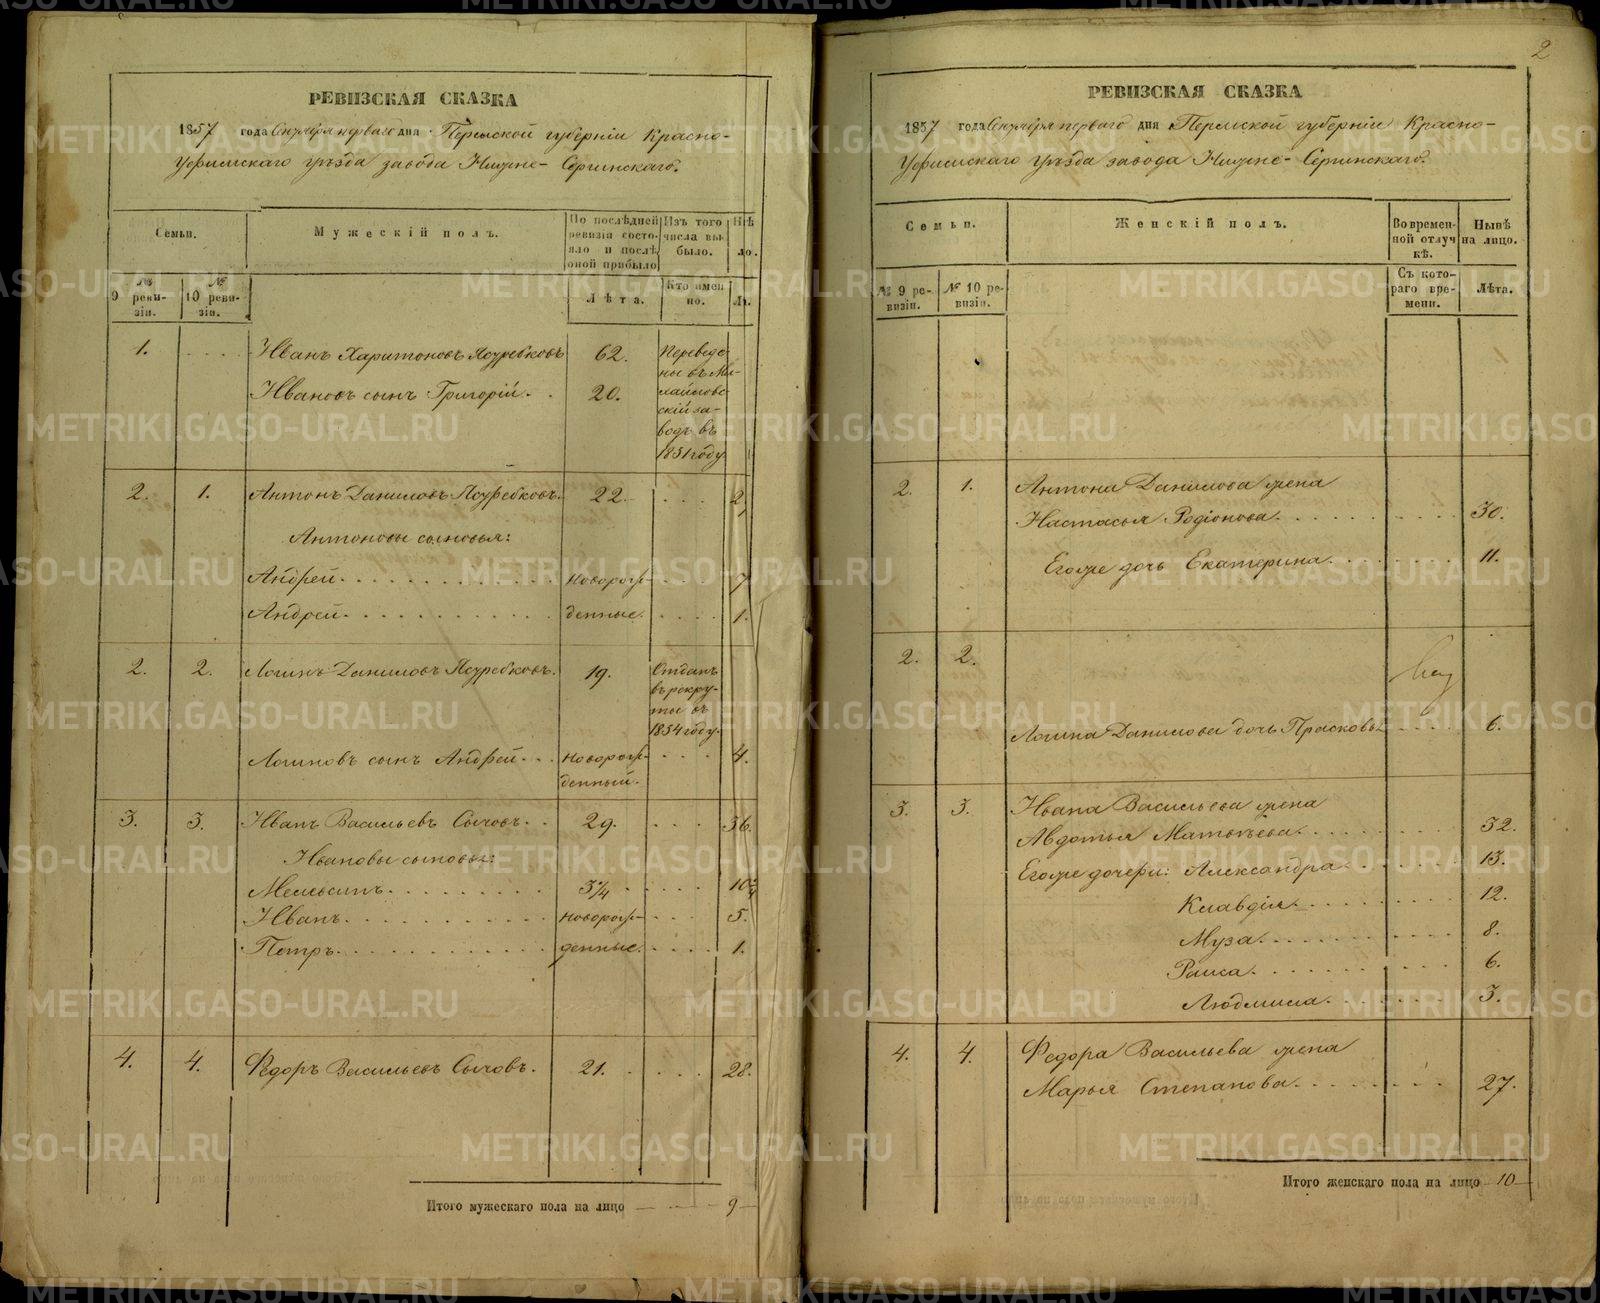 РЕВИЗСКАЯ СКАЗКА
1857 года Сентября перваго дня Пермской губернiи Красно-
Уфимскаго уѣзда завода Нижне-Сергинскаго.
Семьи.
Мужескiй полъ.
По послѣдней ревизiи состояло и послѣ оной прибыло
Изъ того числа выбыло.
№ 9 ревизiи.
№ 10 ревизiи.
Лѣта.
Кто именно.
Лѣ.
1. Иванъ Харитоновъ Ястребковъ 62. Переведе-
ны въ Ми-
Ивановъ сынъ Григорiй. 20. хайловс-
скiй за-
водъ въ
1851 году.
2. 1. Антонъ Даниловъ Ястребковъ. 22.
Антоновы сыновья:
Андрей. новорож- 7
Андрей. денные. 1.
2. 2. Логинъ Даниловъ Ястребковъ. 19. Отданъ
въ рекру-
ты въ
1854 году.
Логиновъ сынъ Андрей. новорож- 4.
денный.
3. 3. Иванъ Васильевъ Сычовъ. 29. 36.
Ивановы сыновья:
3/4
Иванъ. новорож- 5.
Петръ. денные. 1.
4. 4. Федоръ Васильевъ Сычовъ. 21. 28.
Итого мужескаго пола на лицо 9
2
РЕВИЗСКАЯ СКАЗКА
1857 года Сентября перваго дня Пермской губернiи Красно-
Уфимскаго уѣзда завода Нижне-Сергинскаго.
Семьи.
Женскiй полъ.
Во временной отлучкѣ.
Нынѣ на лицо.
№ 9 ревизiи.
№ 10 ревизiи.
Съ котораго времени.
Лѣта.
2. 1. Антона Данилова жена
Настасья Родiонова. 30.
Егоже дочь Екатерина. 11.
2. 2.
Логина Данилова дочь Прасковья 6.
3. 3. Ивана Васильева жена
Авдотья Матвѣева. 32.
Егоже дочери: Александра. 13.
Клавдiя. 12.
Муза. 8.
Раиса. 6.
Людмила. 3.
4. 4. Федора Васильева жена
Марья Степанова. 27.
Итого женскаго пола на лицо 10
METRIKI.GASO-URAL.RU